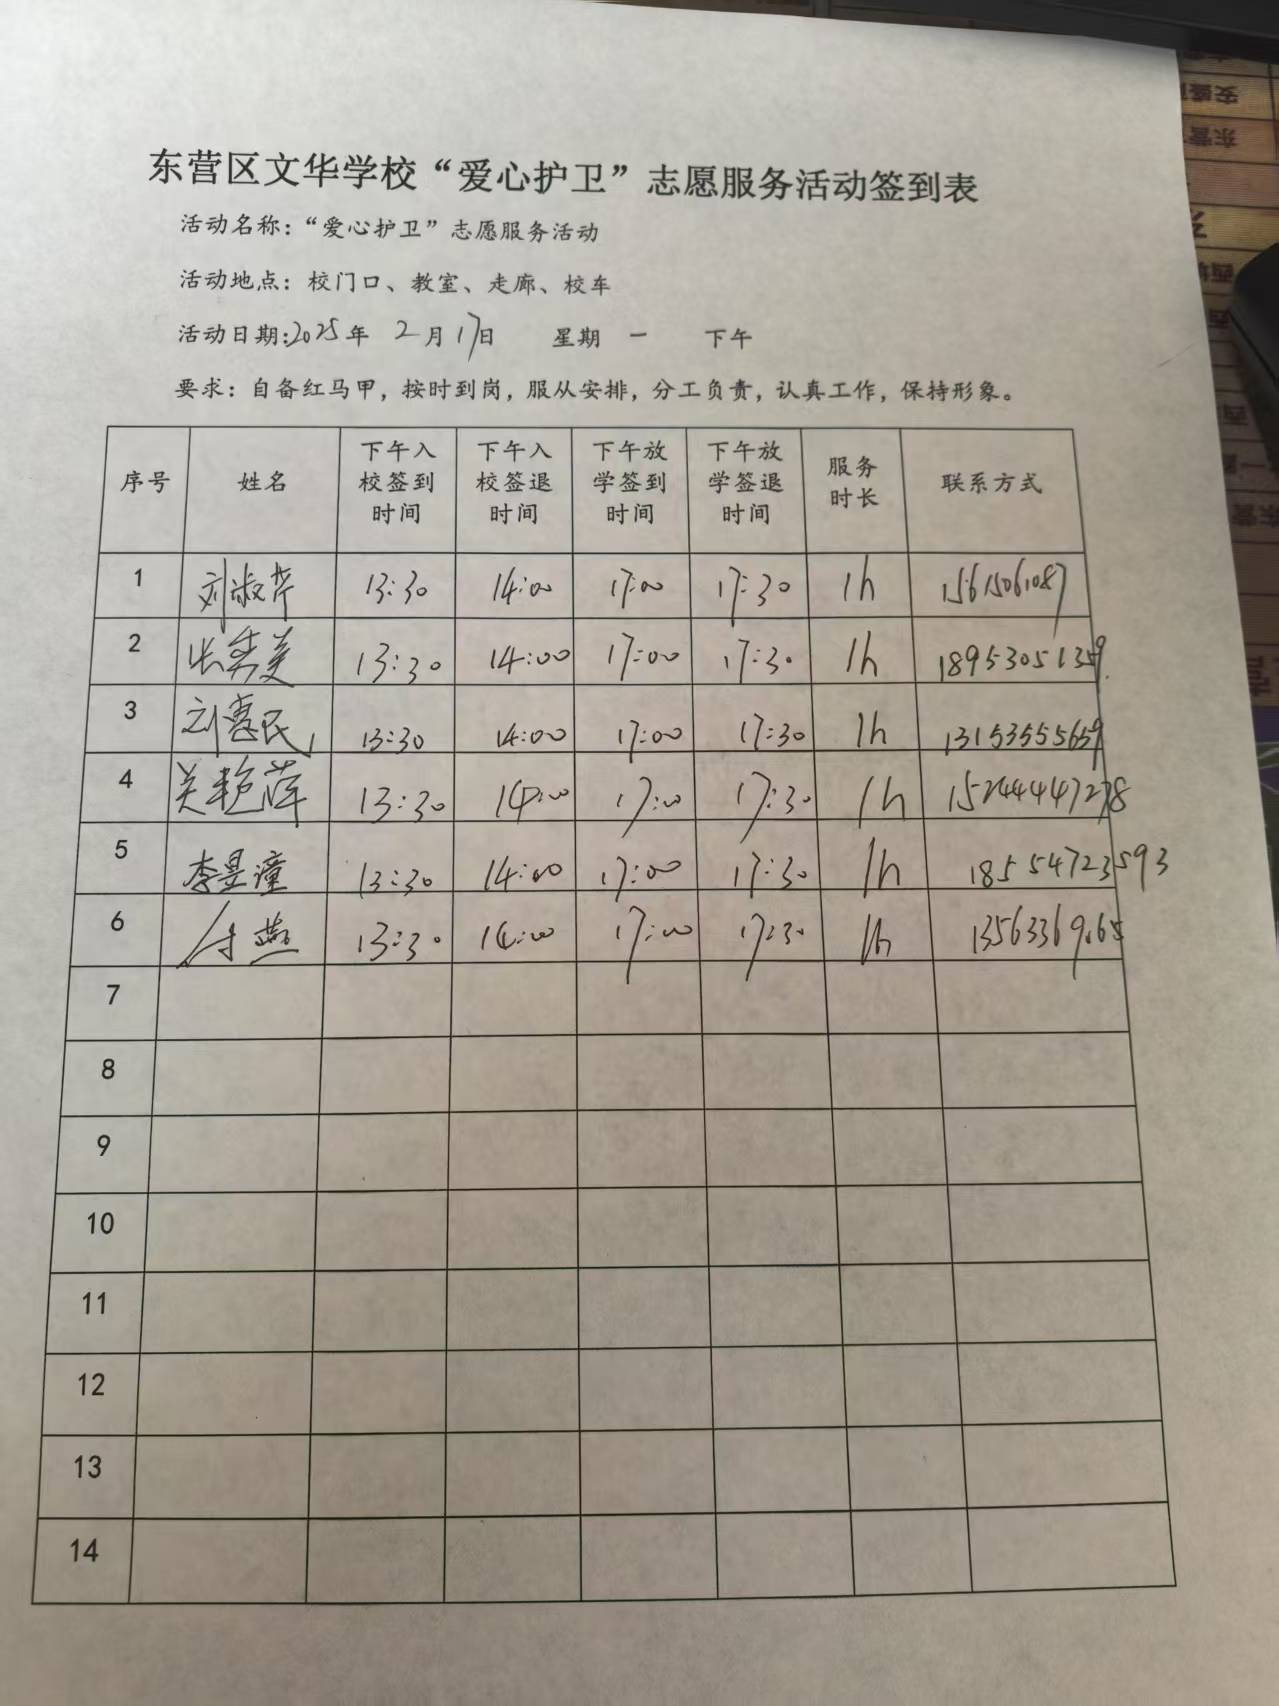 东营区文华学校“爱心护卫”志愿服务活动签到表
活动名称：“爱心护卫”志愿服务活动
活动地点：校门口、教室、走廊、校车
活动日期：2025年 2月17日 星期 一 下午
要求：自备红马甲，按时到岗，服从安排，分工负责，认真工作，保持形象。
序号 姓名 下午入校签到时间 下午入校签退时间 下午放学签到时间 下午放学签退时间 服务时长 联系方式
1 刘淑芹 13:30 14:00 17:00 17:30 1h 15615061087
2 13:30 14:00 17:00 17:30 1h 18953051359
3 刘喜民 13:30 14:00 17:00 17:30 1h 13153555659
4 吴艳萍 13:30 14:00 17:00 17:30 1h 15244447278
5 李昱潼 13:30 14:00 17:00 17:30 1h 18554723593
6 付燕 13:30 14:00 17:00 17:30 1h
7
8
9
10
11
12
13
14